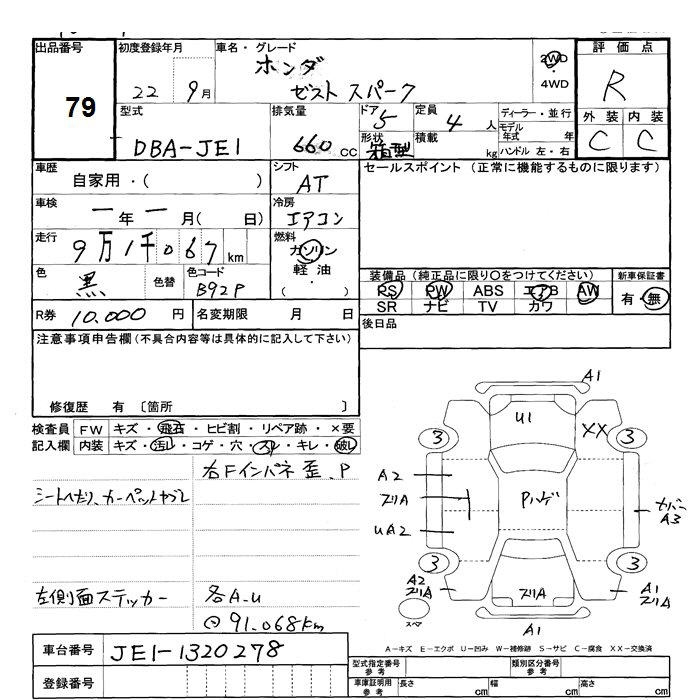 出品番号
79
初度登録年月
22 9月
車名・グレード
ホンダ
ゼスト スパーク
2WD
・
4WD
評価点
R
外装 内装
C C
型式
DBA-JE1
排気量
660 cc
ドア
5
形状
箱型
定員
4 人
積載
kg
ディーラー・並行
モデル年式 年
ハンドル 左・右
車歴
自家用・( )
シフト
AT
セールスポイント (正常に機能するものに限ります)
車検
ー年ー月( 日)
冷房
エアコン
走行
9万1千067km
燃料
ガソリン
軽油
( )
色
黒
色替
色コード
B92P
装備品 (純正品に限り○をつけてください)
PS PW ABS エアB AW
SR ナビ TV カワ
新車保証書
有・無
R券 10.000円
名変期限 月 日
後日品
注意事項申告欄 (不具合内容等は具体的に記入して下さい)
修復歴 有 〔箇所 〕
検査員記入欄
FW キズ・飛石・ヒビ割・リペア跡・×要
内装 キズ・汚レ・コゲ・穴・スレ・キレ・破レ
右Fインパネ歪、P
シートヘタリ、カーペットヤブレ
左側面ステッカー
各A-U
91.068km
A1
U1
XX
3
3
A2
ズリA
UA2
Pハゲ
カバー
A3
3
3
A2
ズリA
ズリA
A1
ズリA
スペア
A1
A-キズ E-エクボ U-凹み W-補修跡 S-サビ C-腐食 XX-交換済
車台番号 JE1-1320278
登録番号
型式指定番号
参考
類別区分番号
参考
車庫証明用
参考
長さ cm
幅 cm
高さ cm